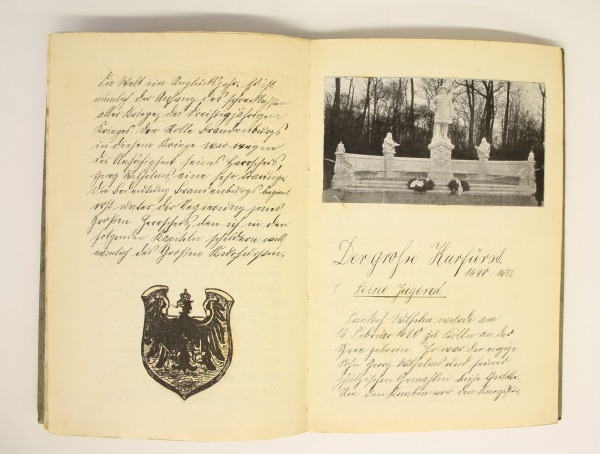 die Welt ein Unglücksjahr. Es ist
nämlich der Anfang des schrecklichsten
aller Kriege, des Dreißigjährigen
Krieges. Die Rolle Brandenburgs
in diesem Kriege war wegen
der Unfähigkeit seines Herrschers
Georg Wilhelms eine sehr traurige.
Die Bedeutung Brandenburgs beginnt
erst unter der Regierung jenes
Großen Herrschers, den ich in den
folgenden Kapiteln schildern will
nämlich des Großen Kurfürsten.
Der große Kurfürst.
1640-1688.
1. Seine Jugend.
Friedrich Wilhelm wurde am
16. Februar 1620 zu Kölln an der
Spree geboren. Er war der einzige
Sohn Georg Wilhelms und seiner
pfälzischen Gemahlin Luise Charlotte.